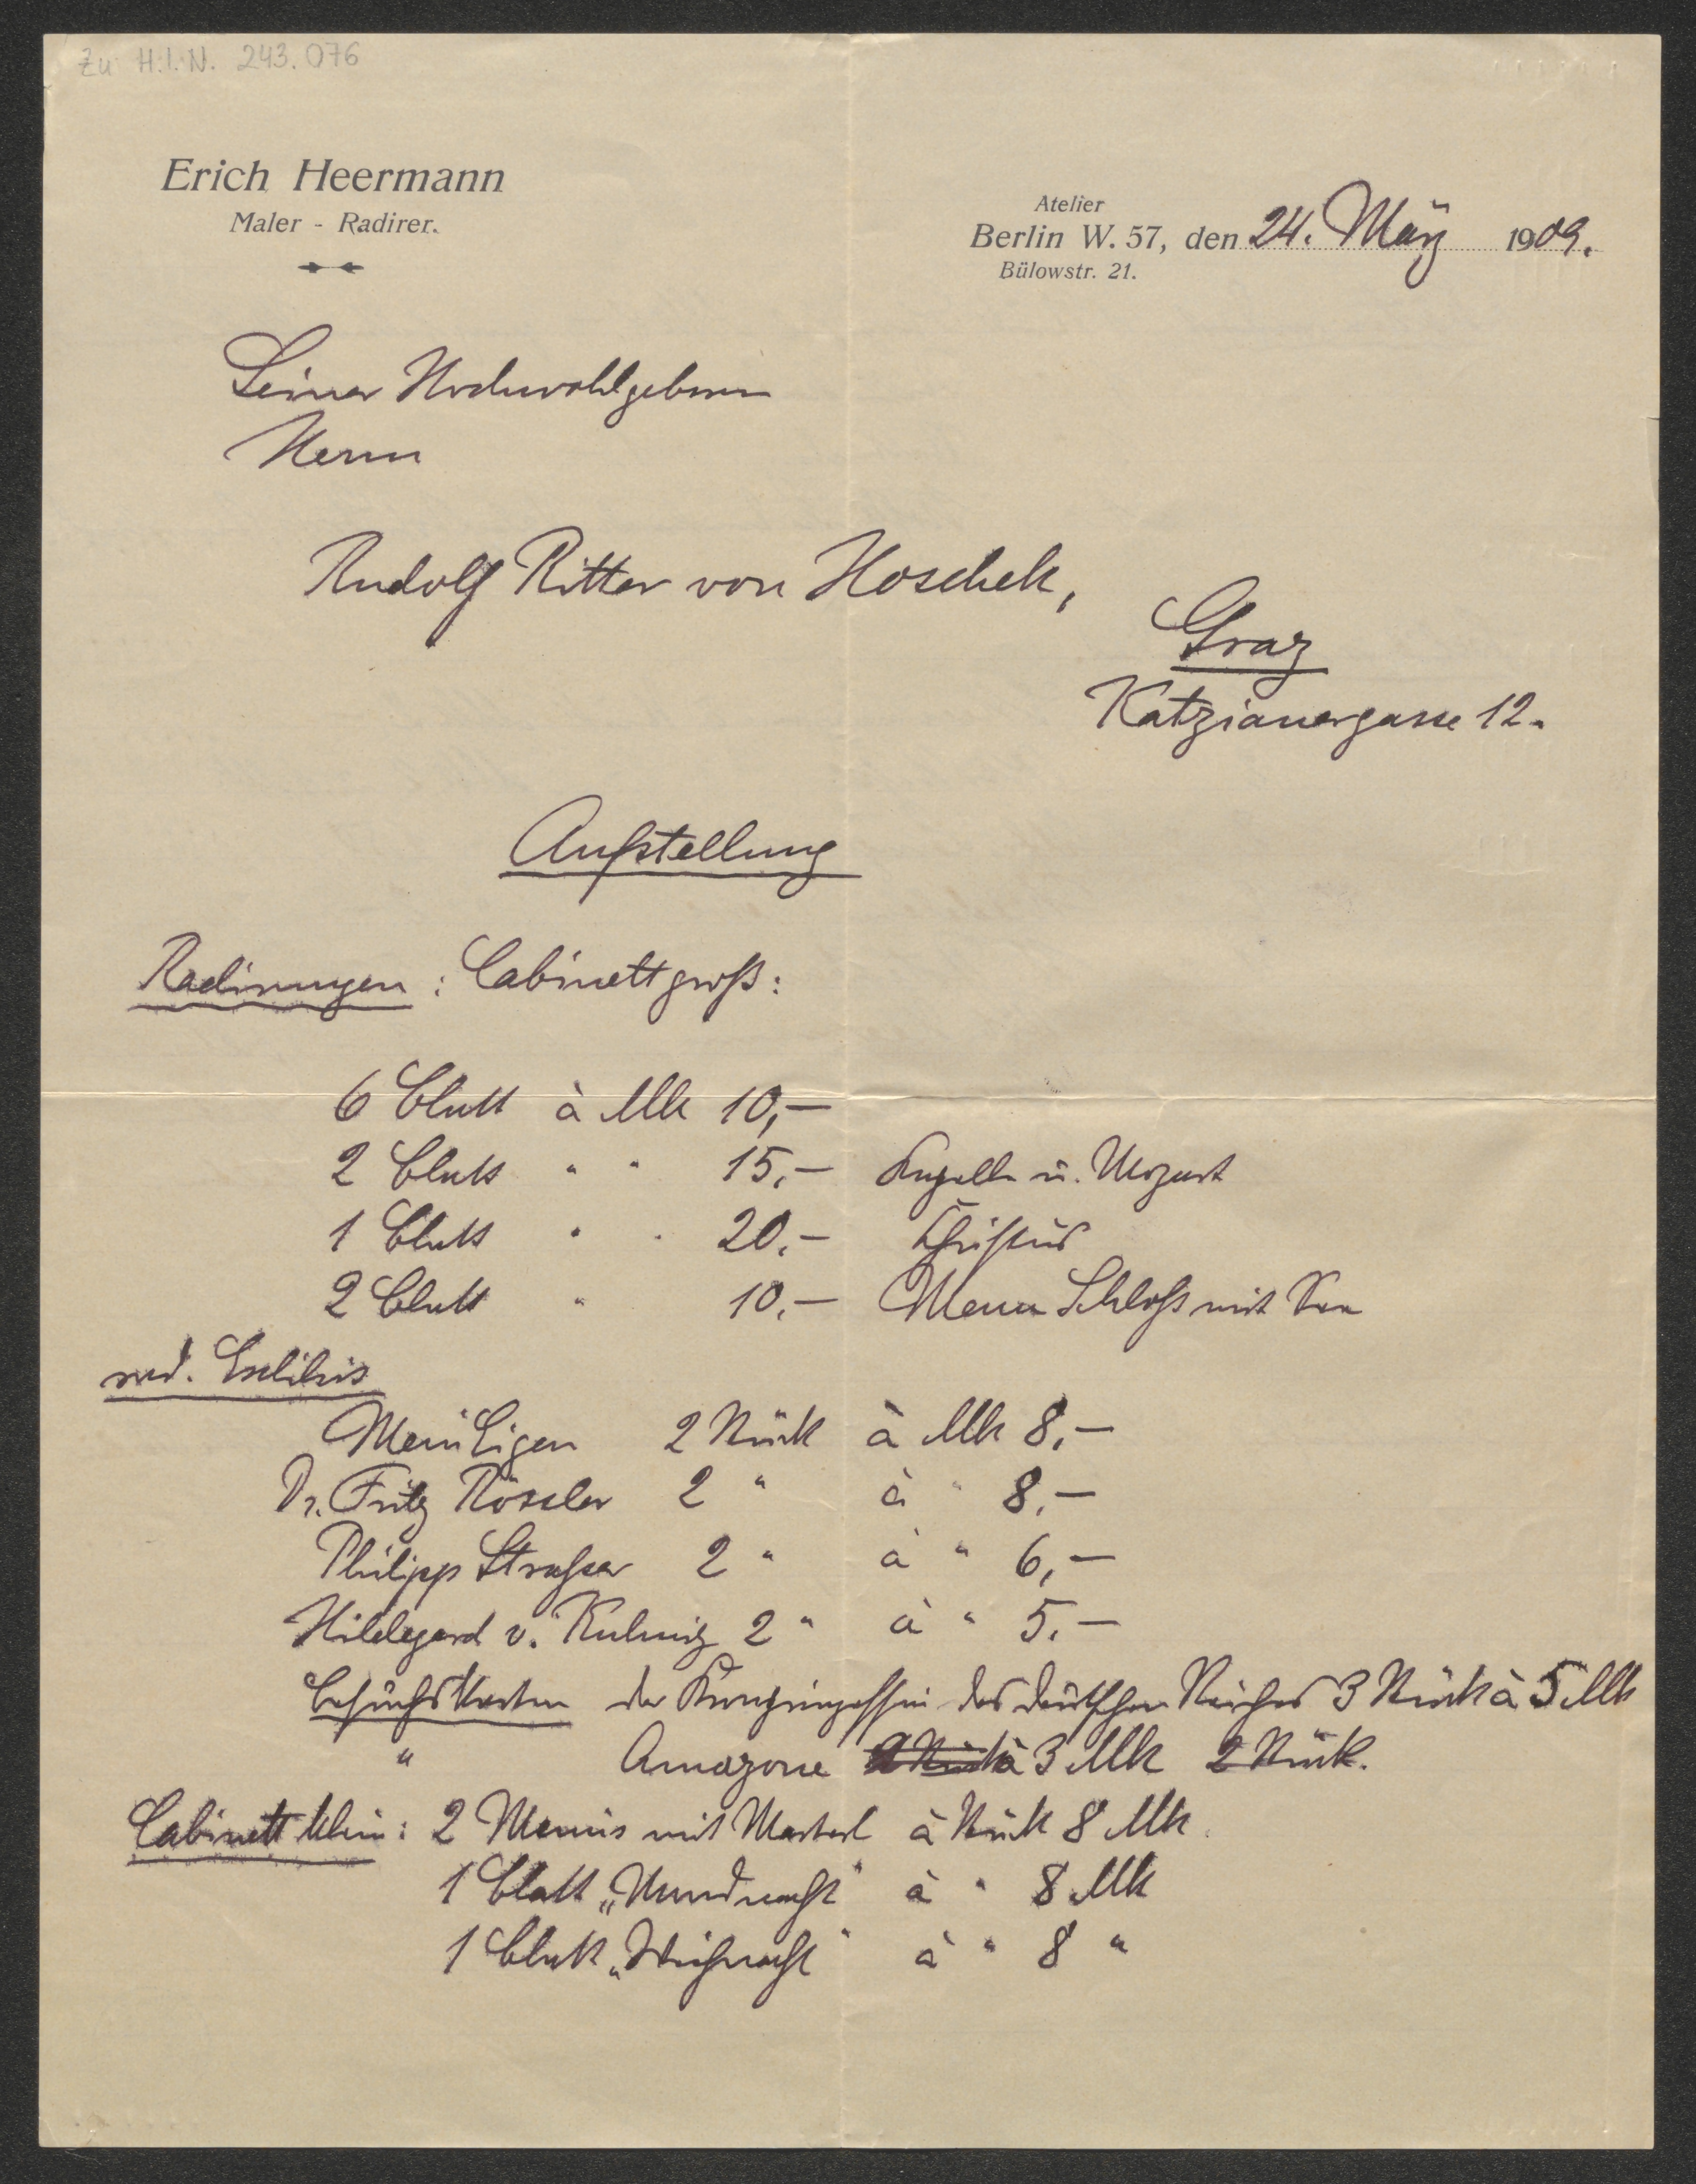 Zu H.I.N. 243.076
Erich Heermann
Maler - Radirer.
Atelier
Berlin W. 57, den 24. März 1909.
Bülowstr. 21.
Seiner Hochwohlgeboren
Herrn
Rudolf Ritter von Hoschek,
Graz
Katzianergasse 12.
Aufstellung
Radirungen: Cabinettgroß:
6 Blatt à Mk 10,—
2 Blatt " " 15,— Kapelle u. Mozart
1 Blatt " " 20.— Christus
2 Blatt " 10.— Menu Schloß mit See
rad. Exlibris
Mein Eigen 2 Stück à Mk 8,—
Dr. Fritz Rössler 2 " à " 8,—
Philipp Strasser 2 " à " 6,—
Hildegard v. Kulmiz 2 " à " 5.—
Besuchskarten der Kronprinzessin des deutschen Reiches 3 Stück à 5 Mk
" Amazone 2 Stück à 3 Mk 2 Stück.
Cabinett klein: 2 Menüs mit Marterl à Stück 8 Mk.
1 Blatt „Mondnacht" à " 8 Mk
1 Blatt „Weihnacht" à " 8 "